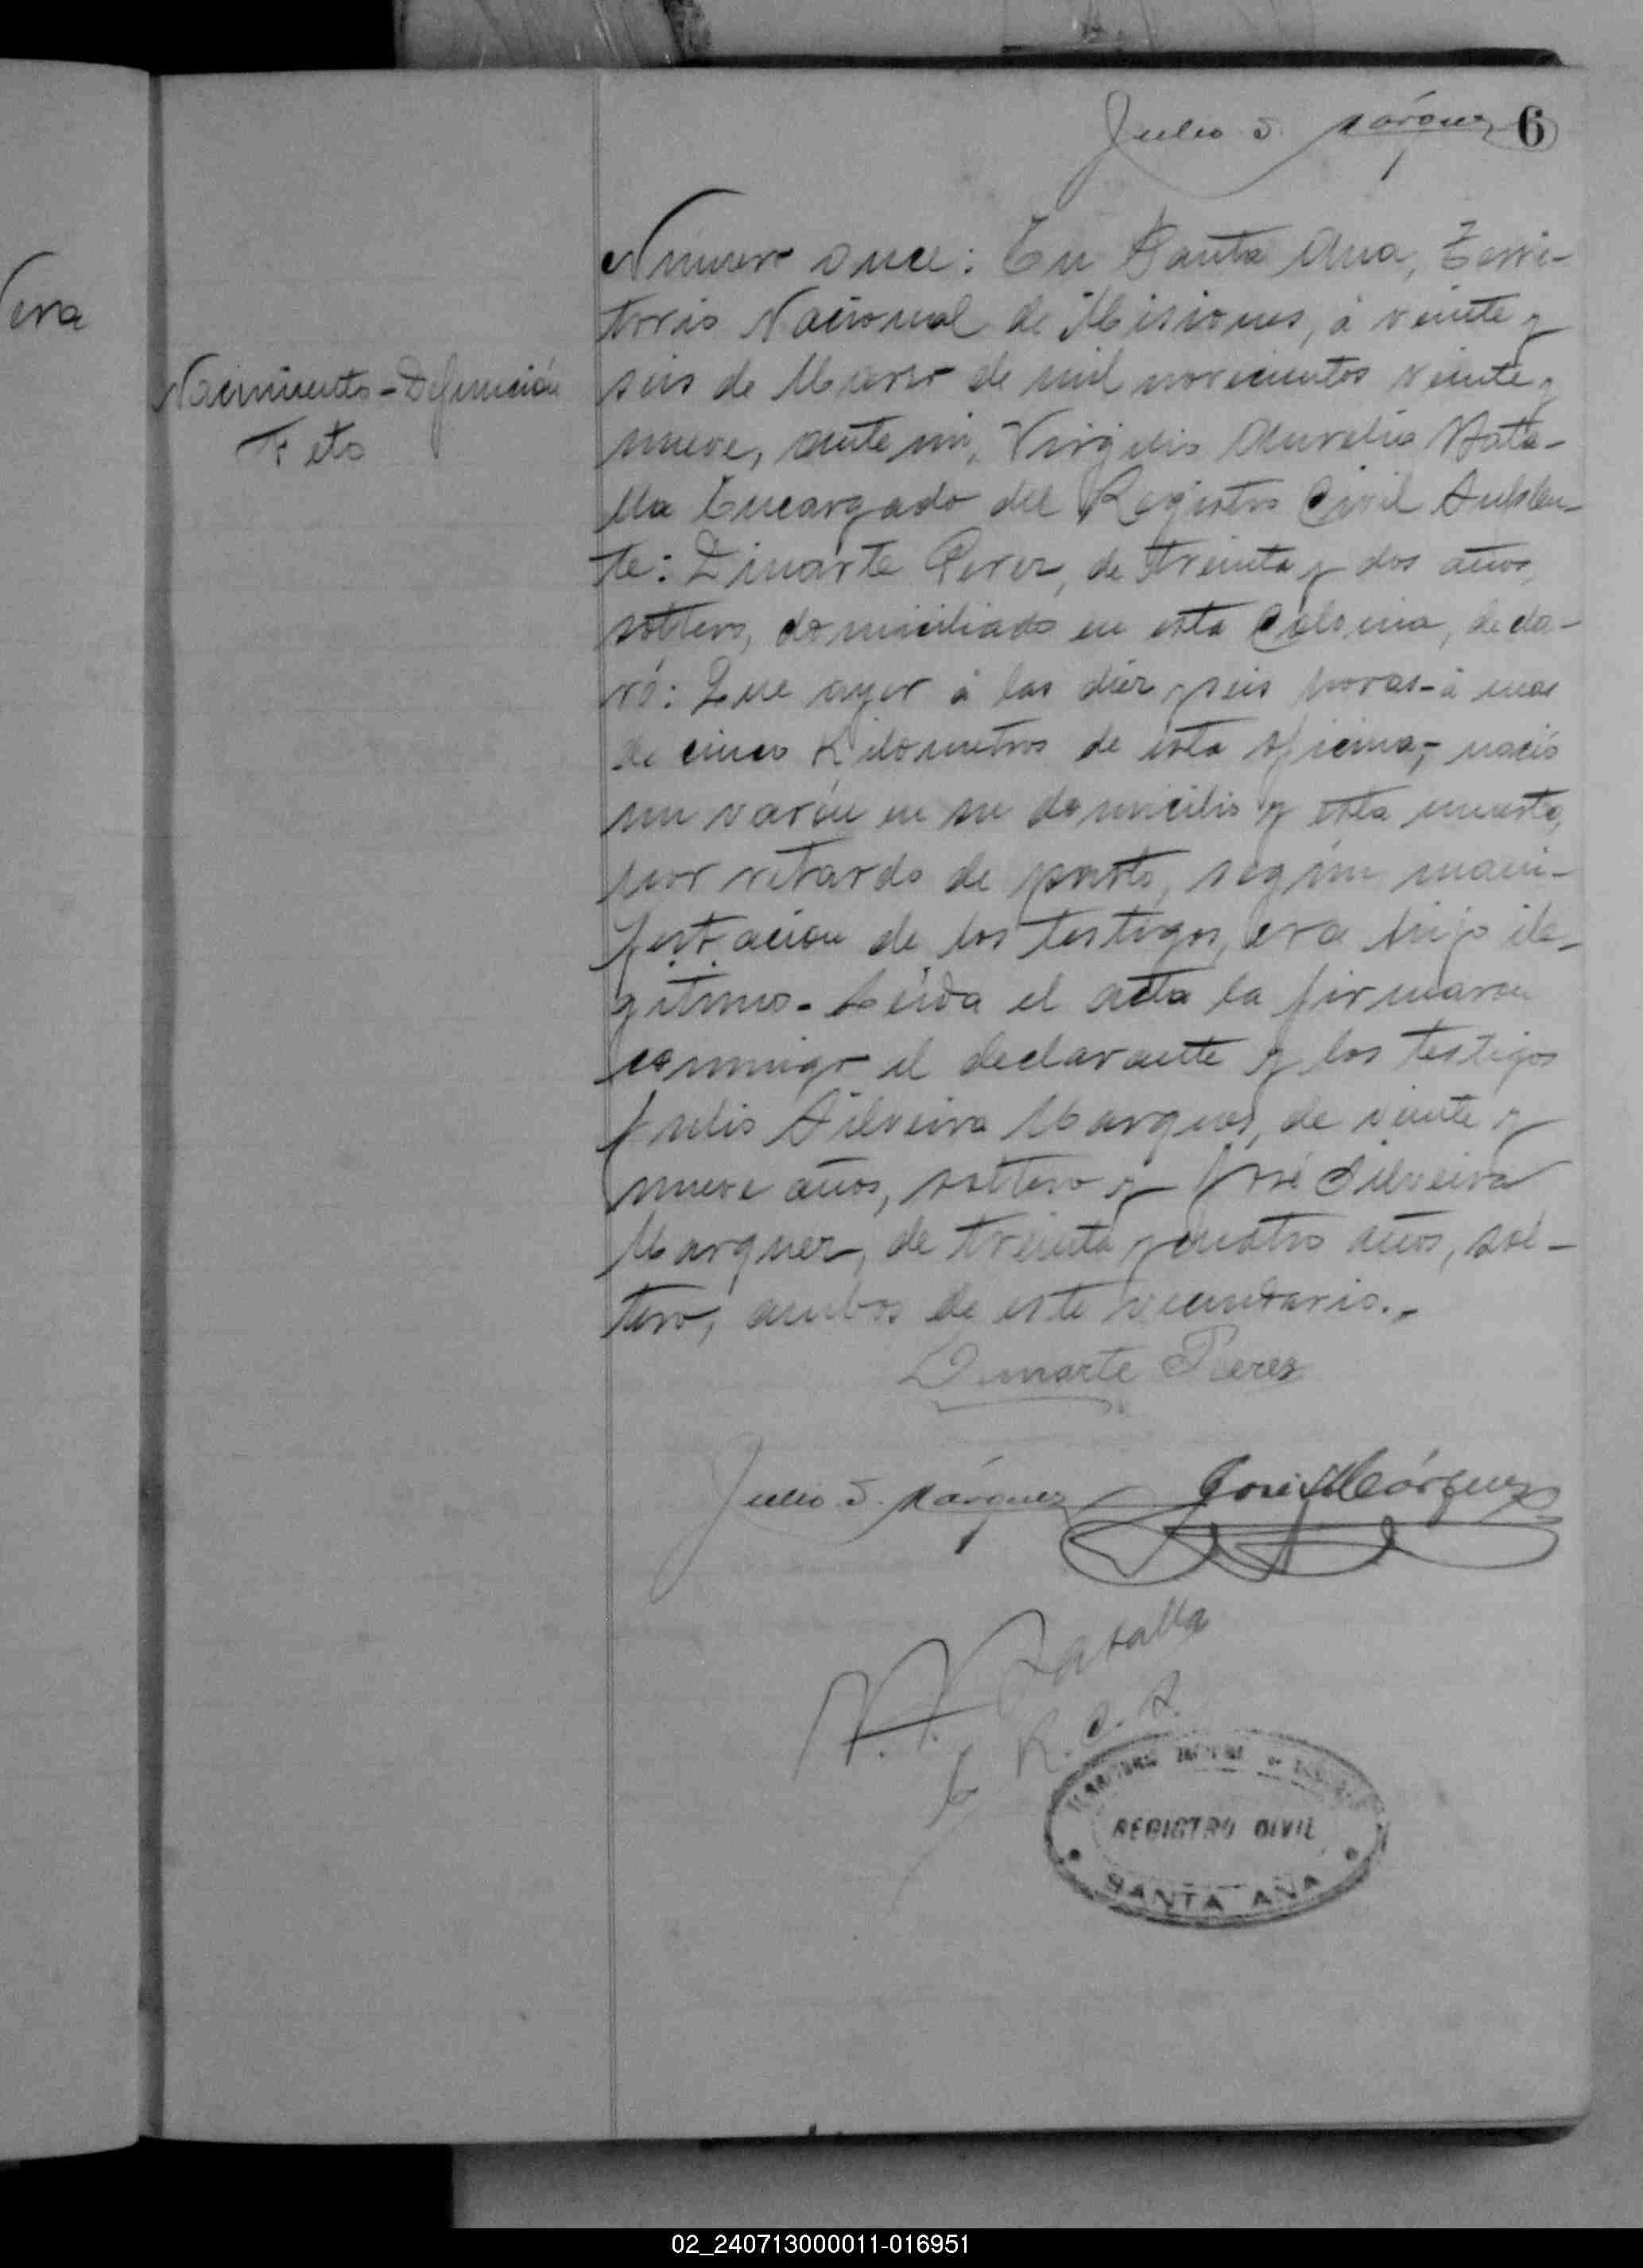 Julio S. Márquez 6
Número once: En Santa Ana, Terri-
torio Nacional de Misiones, á veinte y
seis de Marzo de mil novecientos veinte y
nueve, ante mi, Virgilio Aurelio Rata-
lla Encargado del Registro Civil Suplen-
te: Dinarte Perez, de treinta y dos años,
soltero, domiciliado en esta Colonia, decla-
ró: Que ayer á las diez y seis horas - á mas
de cinco Kilometros de esta oficina, - nació
un varón en su domicilio y esta muerto,
por retardo de parto, según mani-
festacion de los testigos, era hijo ile-
gitimo. - Leída el acta la firmaron
conmigo el declarante y los testigos
Julio Silveira Marques, de veinte y
nueve años, soltero y José Silveira
Marquez, de treinta y cuatro años, sol-
tero, ambos de este vecindario. -
Nacimiento - Defunción
Feto
Vera
Dinarte Perez
Julio S. Márquez José S. Márquez
V. A. Ratalla
E R. C. S.
REGISTRO CIVIL
SANTA ANA
02_240713000011-016951